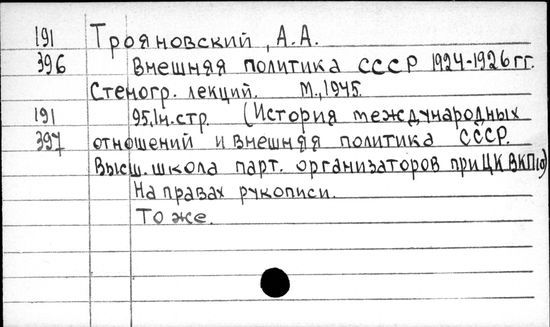 191 Трояновский, А.А.
396 Внешняя политика СССР 1924-1926 гг.
Стеногр. лекций. М., 1945.
191 95,1н.стр. (История международных
397 отношений и внешняя политика СССР.
Высш. школа парт. организаторов при ЦК ВКП(б)
На правах рукописи.
То же.